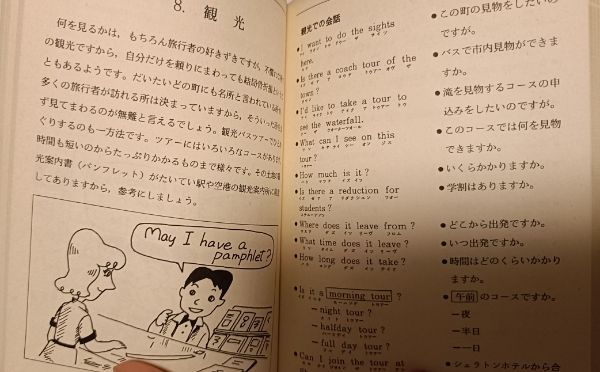 8. 観光
何を見るかは、もちろん旅行者の好きずきですが、不慣れな
の観光ですから、自分だけを頼りにまわっても結局
ともあるようです。だいたいどの町にも名所と言われている
多くの旅行者が訪れる所は決まっていますから、そういった
ず見てまわるのが無難と言えるでしょう。観光バスツアーで
ぐりするのも一方法です。ツアーにはいろいろなコースがあり
時間も短いのからたっぷりかかるものまで様々です。その土地
光案内書（パンフレット）がたいてい駅や空港の観光案内所に
してありますから、参考にしましょう。
May I have a
pamphlet?
観光での会話
●I want to do the sights
here.
●Is there a coach tour of the
town?
●I'd like to take a tour to
see the waterfall.
●What can I see on this
tour?
●How much is it?
●Is there a reduction for
students?
●Where does it leave from?
●What time does it leave?
●How long does it take?
●Is it a morning tour?
—night tour?
—halfday tour?
—full day tour?
●Can I join the tour at
●この町の見物をしたいの
ですが。
●バスで市内見物ができま
すか。
●滝を見物するコースの申
込みをしたいのですが。
●このコースでは何を見物
できますか。
●いくらかかりますか。
●学割はありますか。
●どこから出発ですか。
●いつ出発ですか。
●時間はどのくらいかかり
ますか。
●午前のコースですか。
—夜
—半日
—一日
●シェラトンホテルから合